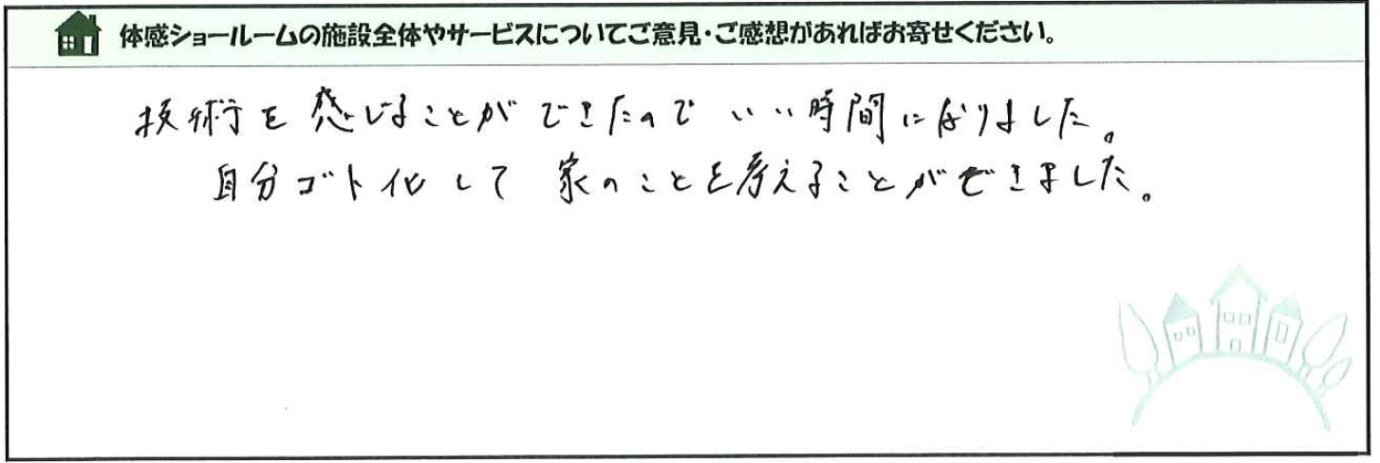 体感ショールームの施設全体やサービスについてご意見・ご感想があればお寄せください。
技術を感じることができたので いい時間になりました。
自分ゴト化して 家のことを考えることができました。